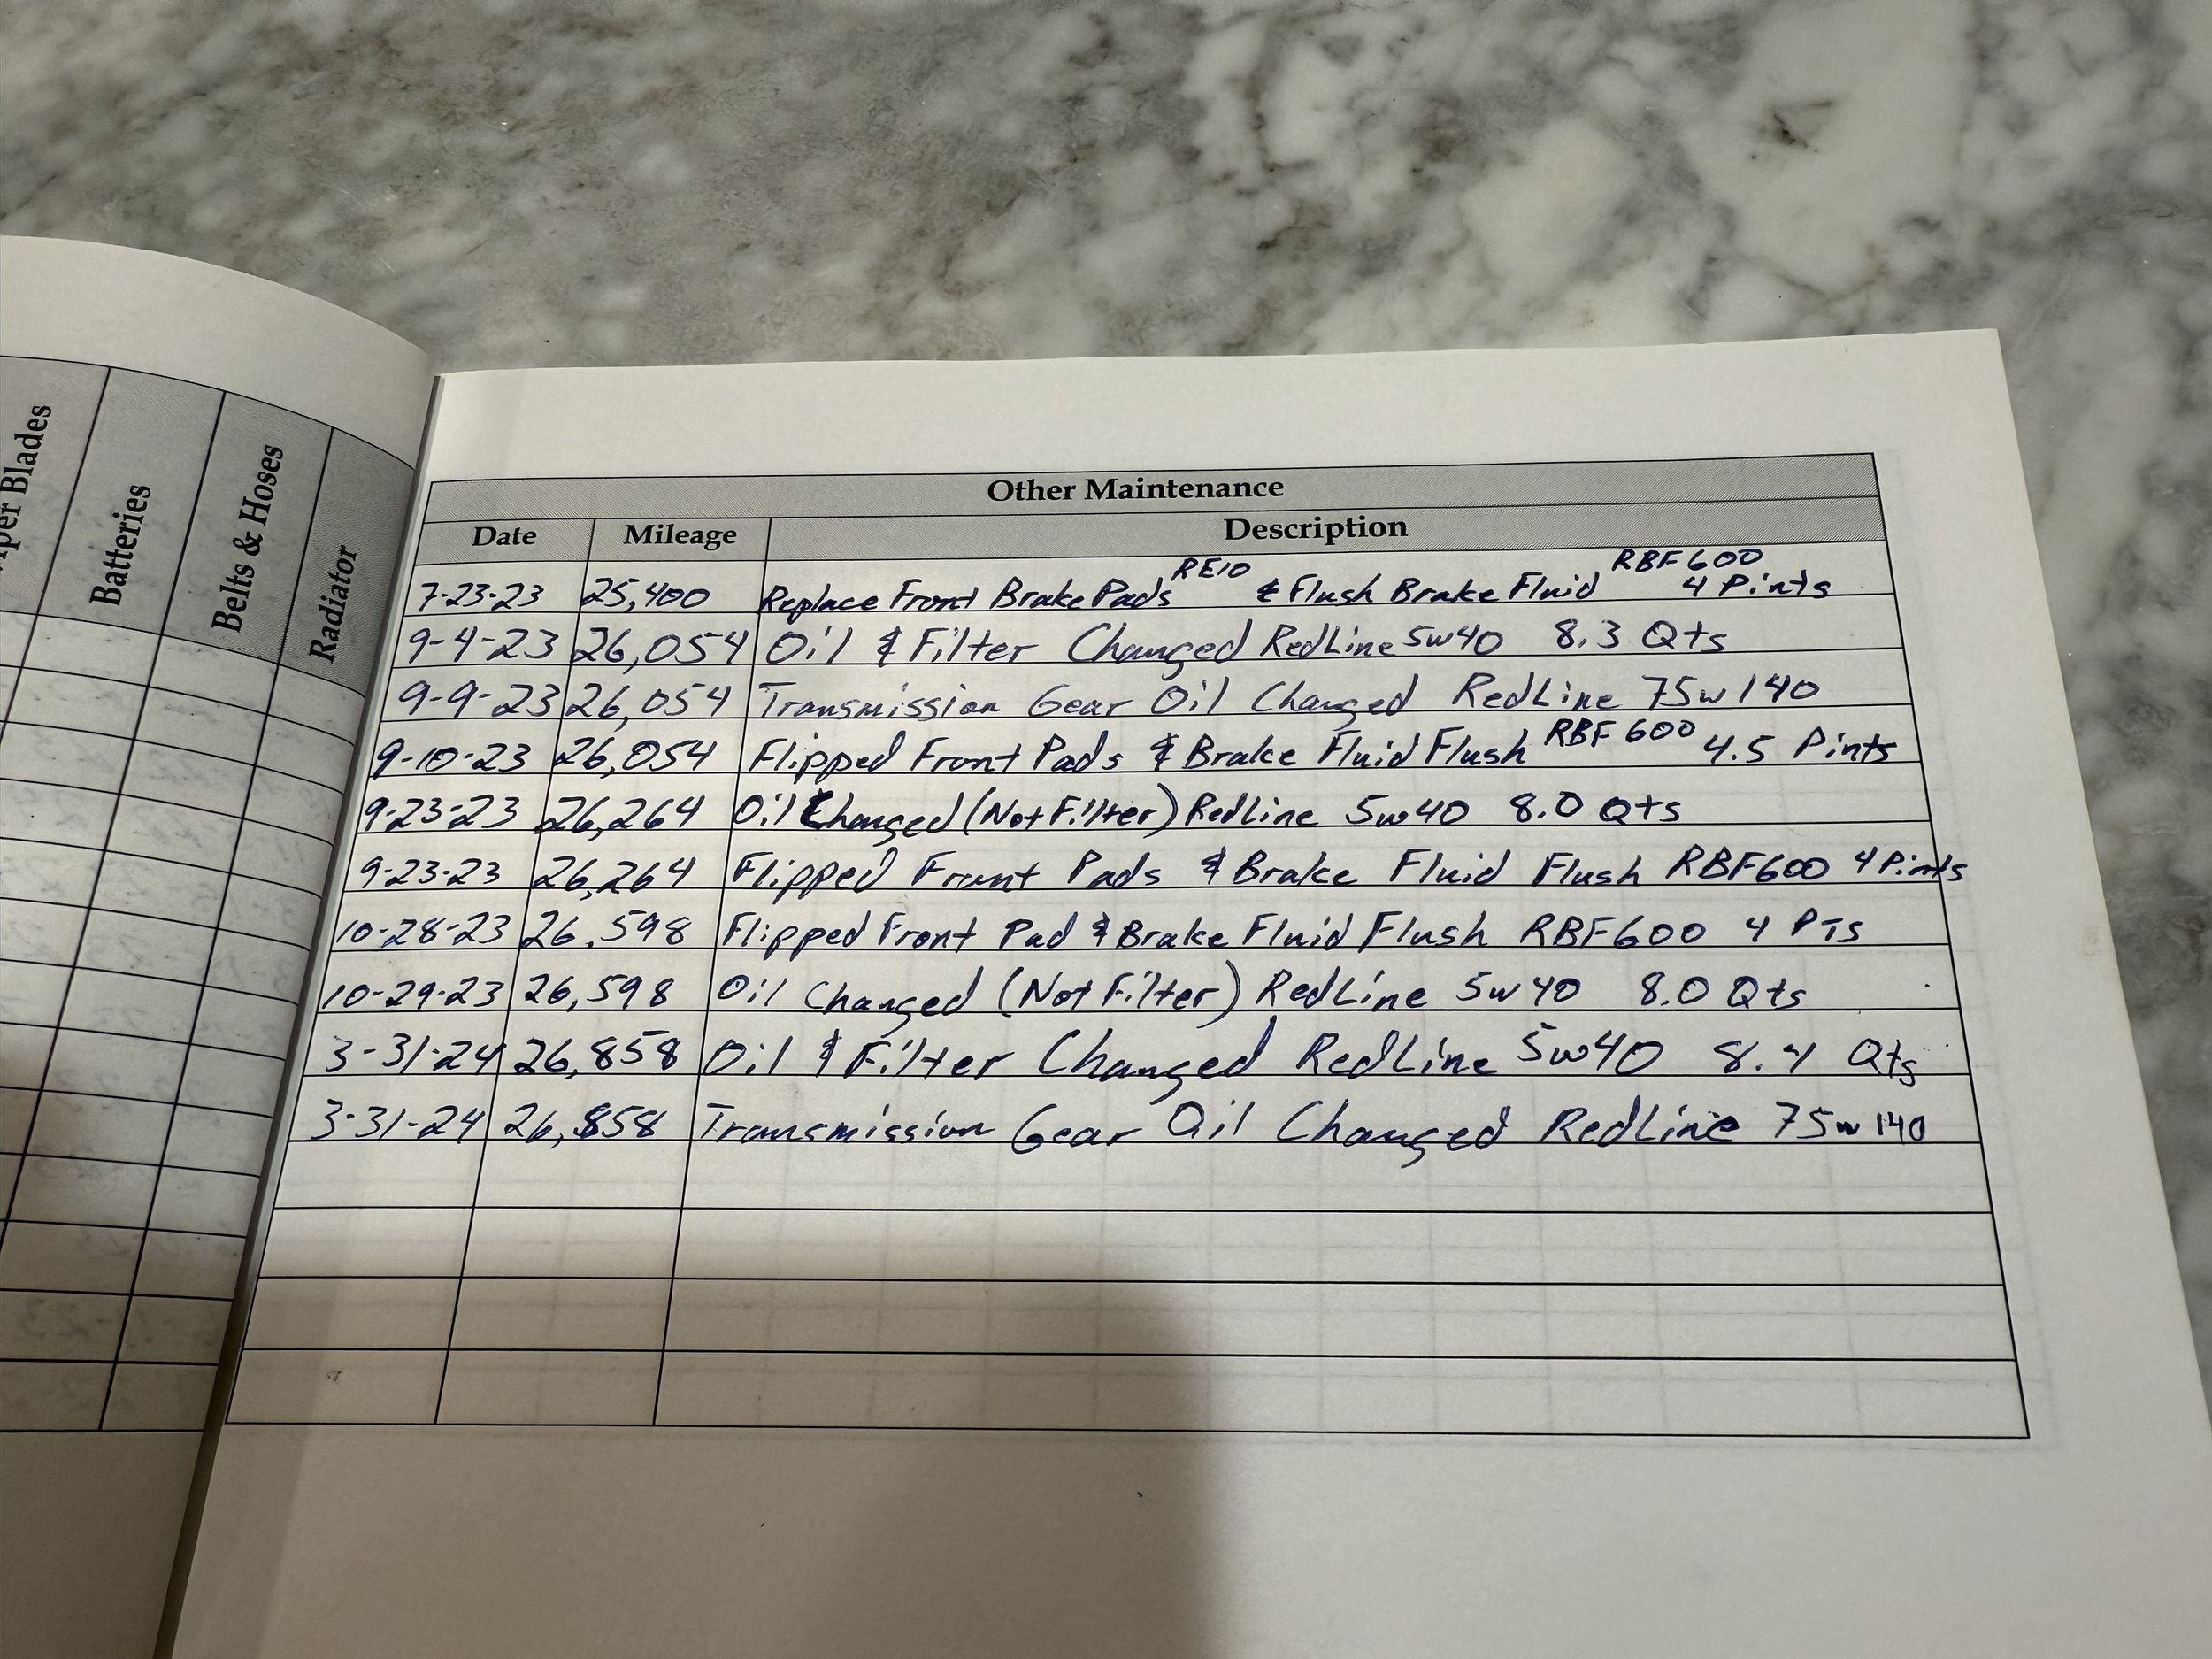 per Blades
Batteries
Belts & Hoses
Radiator
Other Maintenance
Date Mileage Description
7-23-23 25,400 Replace Front Brake Pads RE10 & Flush Brake Fluid RBF600 4 Pints
9-4-23 26,054 Oil & Filter Changed RedLine 5w40 8.3 Qts
9-9-23 26,054 Transmission Gear Oil Changed RedLine 75w140
9-10-23 26,054 Flipped Front Pads & Brake Fluid Flush RBF600 4.5 Pints
9-23-23 26,264 Oil Changed (Not Filter) RedLine 5w40 8.0 Qts
9-23-23 26,264 Flipped Front Pads & Brake Fluid Flush RBF600 4 Pints
10-28-23 26,598 Flipped Front Pad & Brake Fluid Flush RBF600 4 PTs
10-29-23 26,598 Oil Changed (Not Filter) RedLine 5w40 8.0 Qts
3-31-24 26,858 Oil & Filter Changed RedLine 5w40 8.4 Qts
3-31-24 26,858 Transmission Gear Oil Changed RedLine 75w140